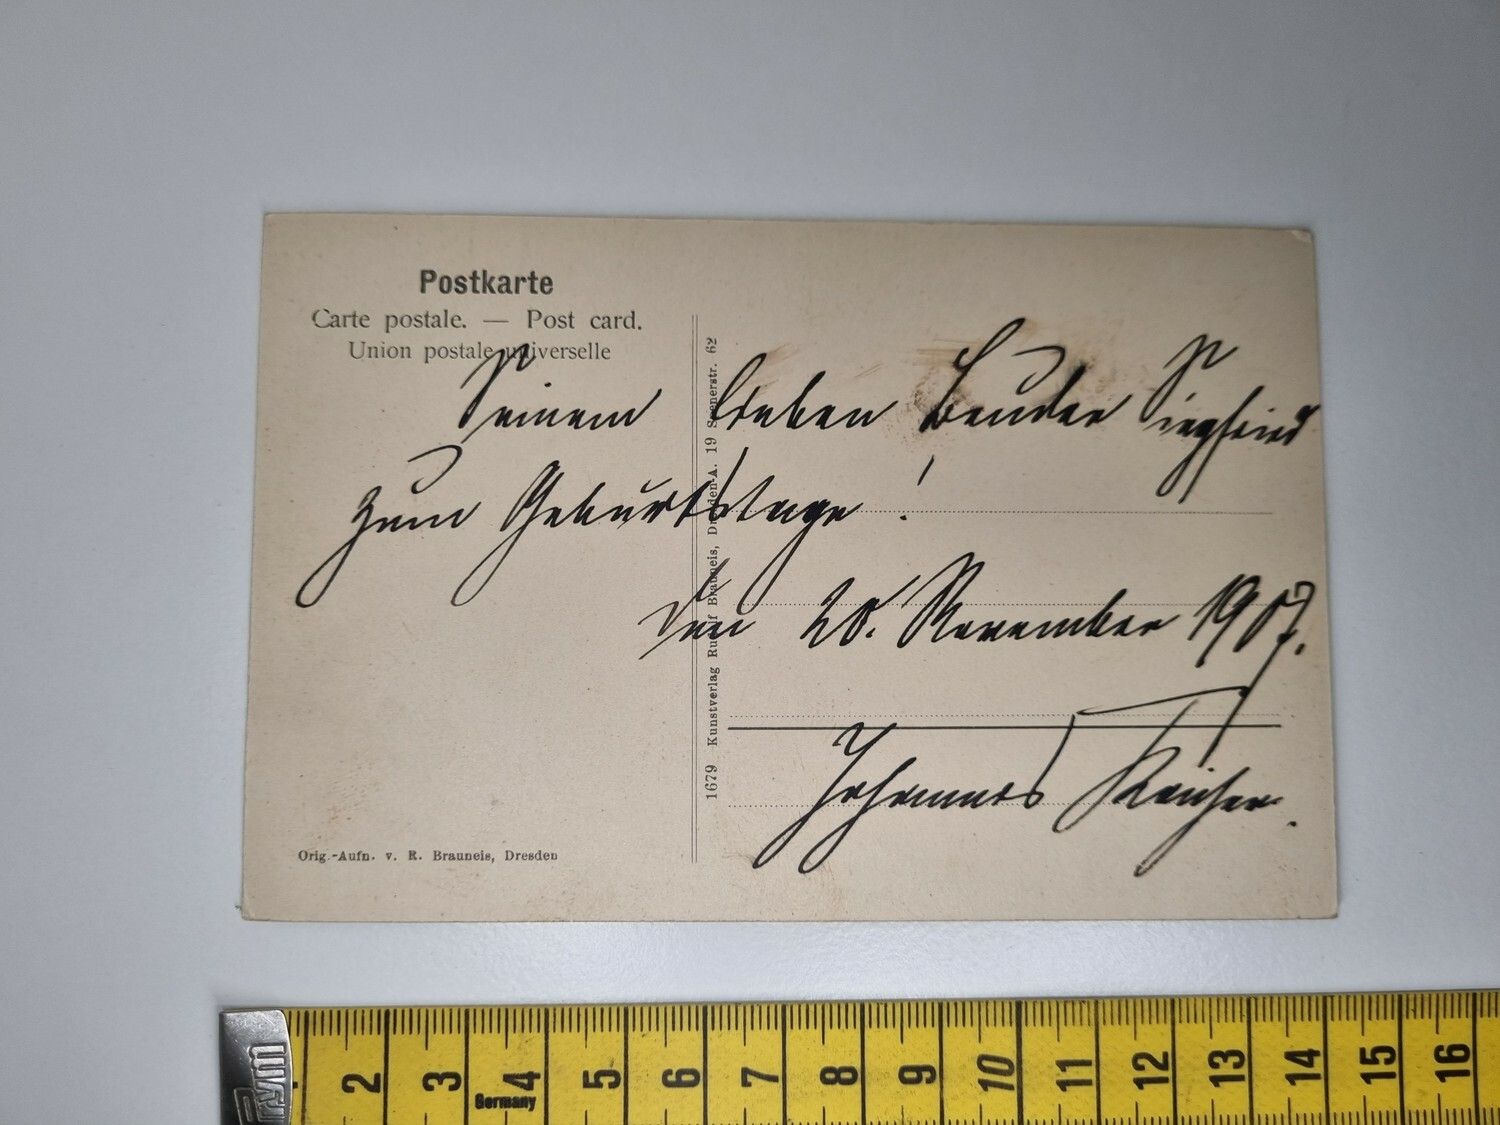 Postkarte
Carte postale. — Post card.
Union postale universelle
Seinem lieben Bruder Siegfried
zum Geburtstage!
den 20. November 1907.
Johannes
Orig.-Aufn. v. R. Brauneis, Dresden
1679 Kunstverlag Rudolf Brauneis, Dresden-A. 19 62
Prym
2 3 4 5 6 7 8 9 10 11 12 13 14 15 16
Germany